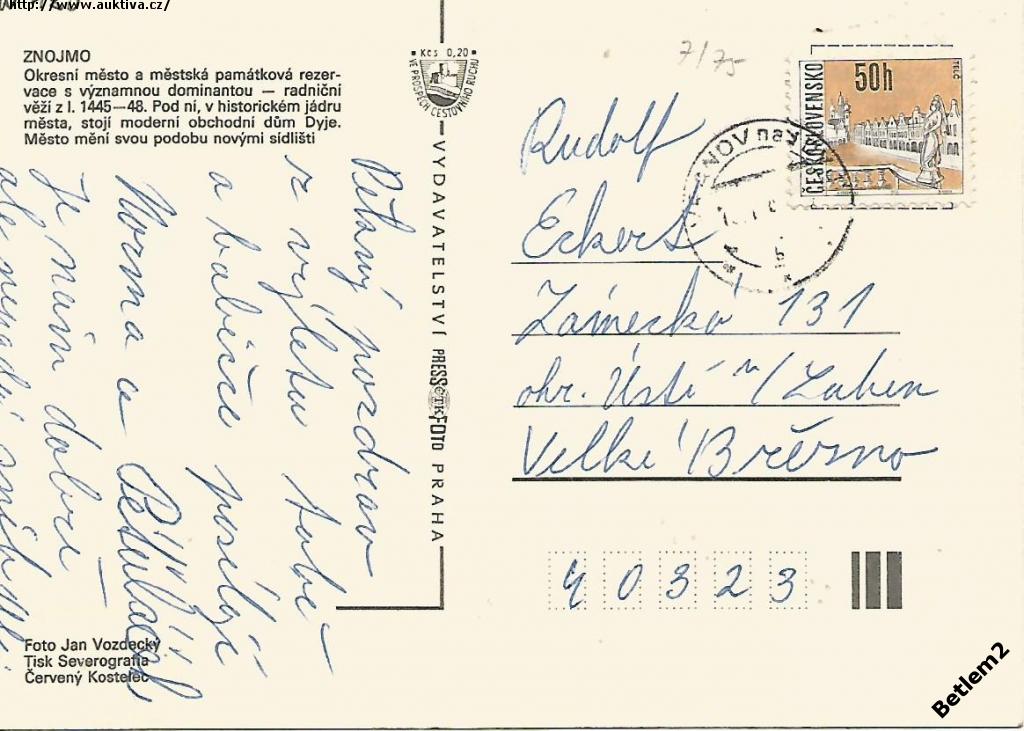 http://www.auktiva.cz/
ZNOJMO
Okresní město a městská památková rezer-
vace s významnou dominantou — radniční
věží z l. 1445—48. Pod ní, v historickém jádru
města, stojí moderní obchodní dům Dyje.
Město mění svou podobu novými sídlišti
Kčs 0,20
VE PROSPĚCH CESTOVNÍHO RUCHU
VYDAVATELSTVÍ PRESSFOTO PRAHA
ČTK
7/75
ČESKOSLOVENSKO
50h
TELČ
Rudolf
Eckert
Zámecká 131
okr. Ústí n/Labem
Velké Březno
40323
pozdrav
z výletu tobě
a babičce posílají
Norma a
Je nám dobře
ale
Foto Jan Vozdecký
Tisk Severografia
Červený Kostelec
Betlem2